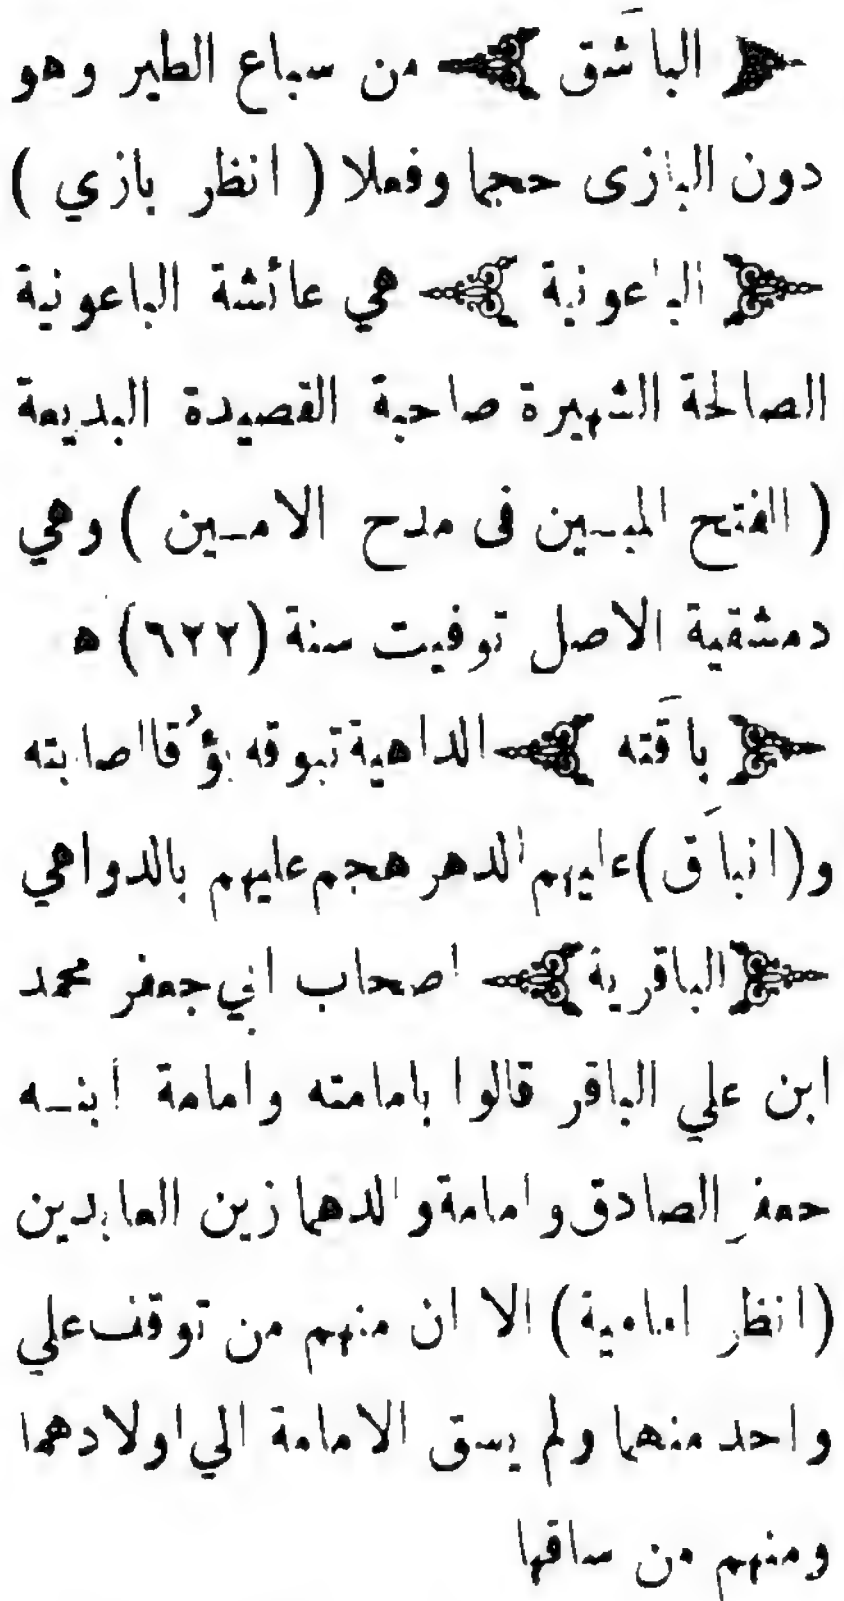 ﴿ الباشَق ﴾ من سباع الطير وهو
دون البازى حجما وفعلا ( انظر بازي )
﴿ الباعونية ﴾ هي عائشة الباعونية
الصالحة الشهيرة صاحبة القصيدة البديعة
( الفتح المبـين فى مدح الامـين ) وهي
دمشقية الاصل توفيت سنة (٦٢٢) ه
﴿ باقَته ﴾ الداهية تبوقه بؤُقا اصابته
و(انباَق) عليهم الدهر هجم عليهم بالدواهي
﴿ الباقرية ﴾ اصحاب ابي جعفر محمد
ابن علي الباقر قالوا بامامته وامامة ابنـه
جعفرِ الصادق وامامة والدهما زين العابدين
(انظر امامية) الا ان منهم من توقف علي
واحد منهما ولم يسق الامامة الي اولادهما
ومنهم من ساقها